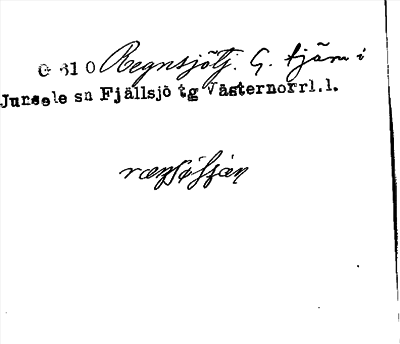 G 310 Regnsjötj. G. tjärn i
Junsele sn Fjällsjö tg Västernorrl.l.